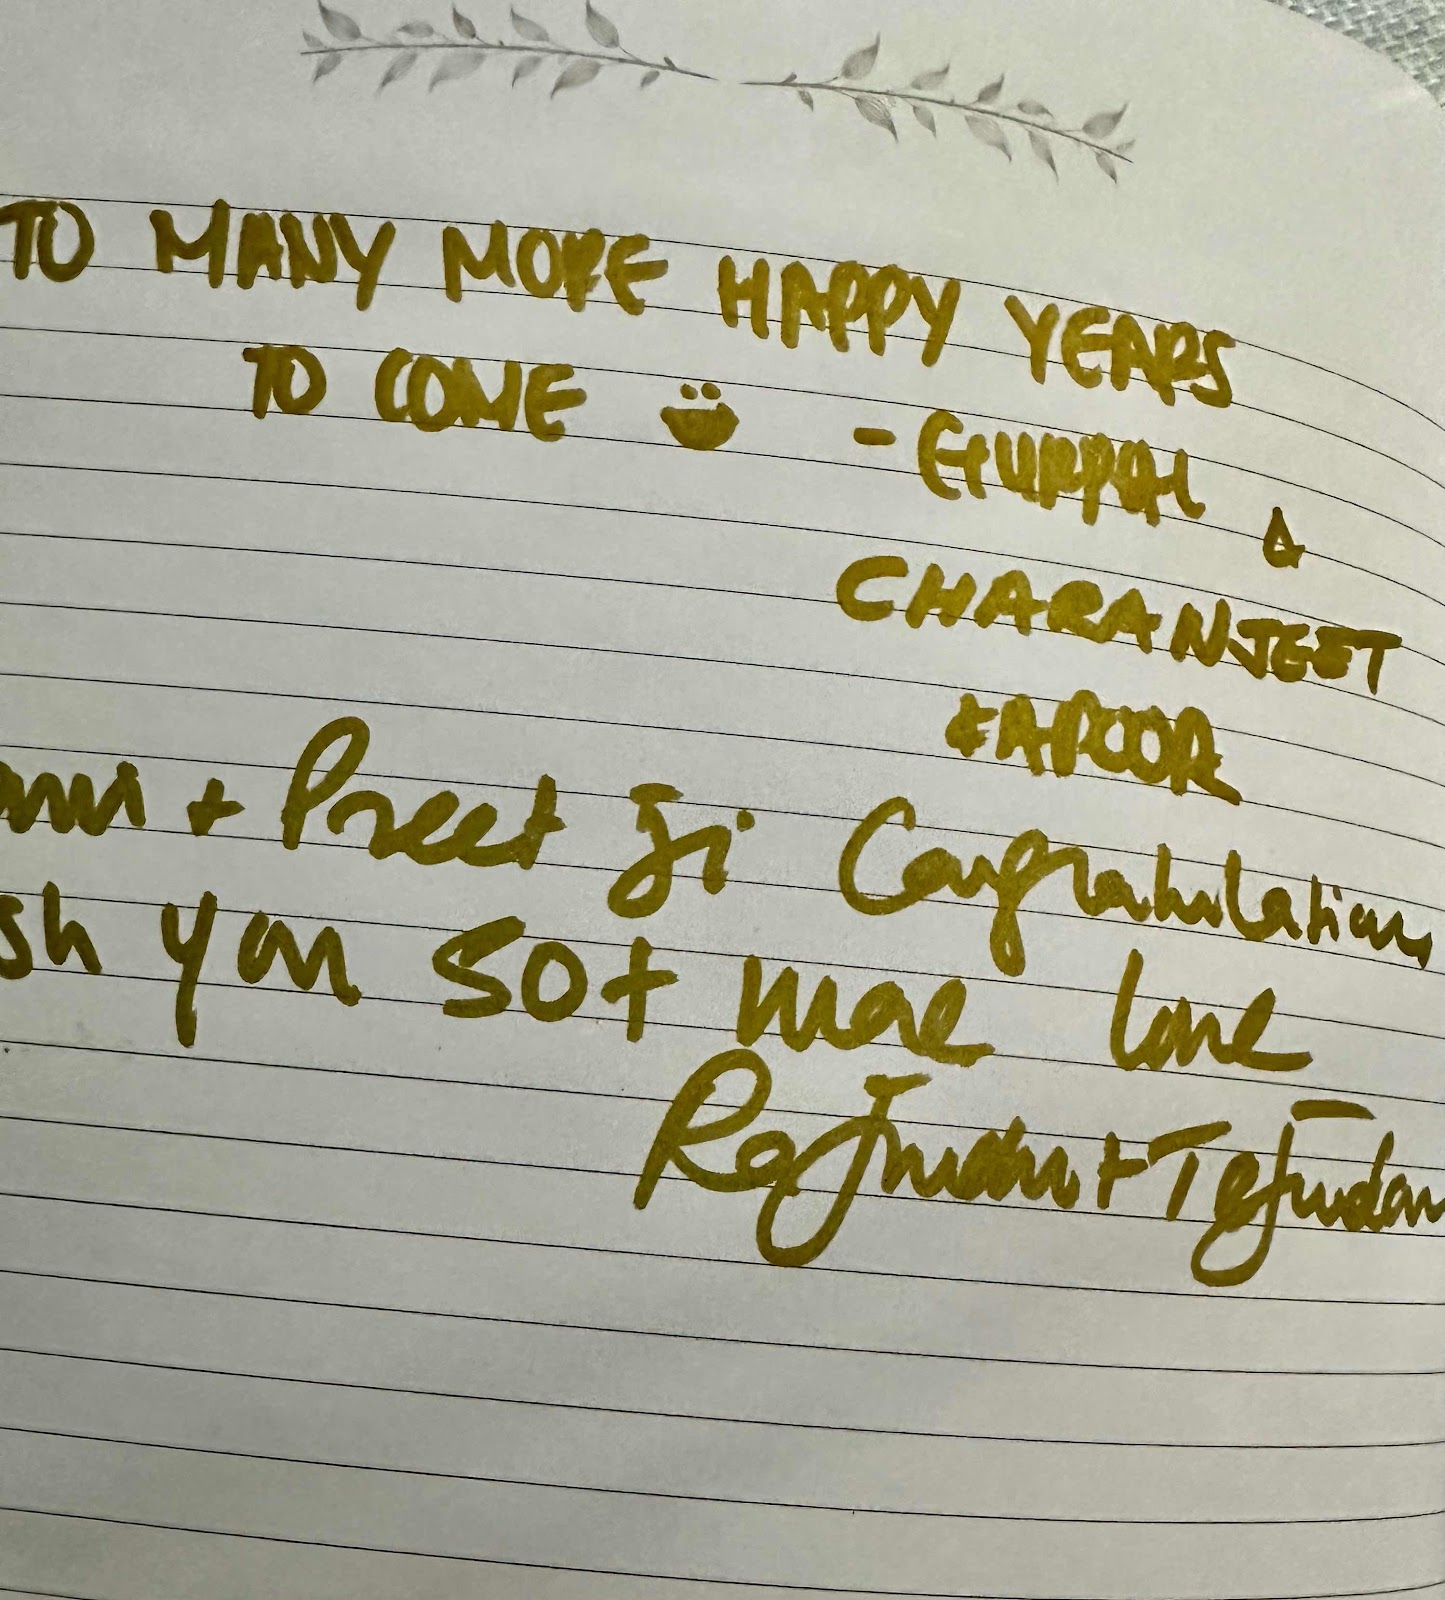 TO MANY MORE HAPPY YEARS
TO COME - GURPAL &
CHARANJEET
KAPOOR
+ Preet Ji Congratulations
you 50+ more love
+